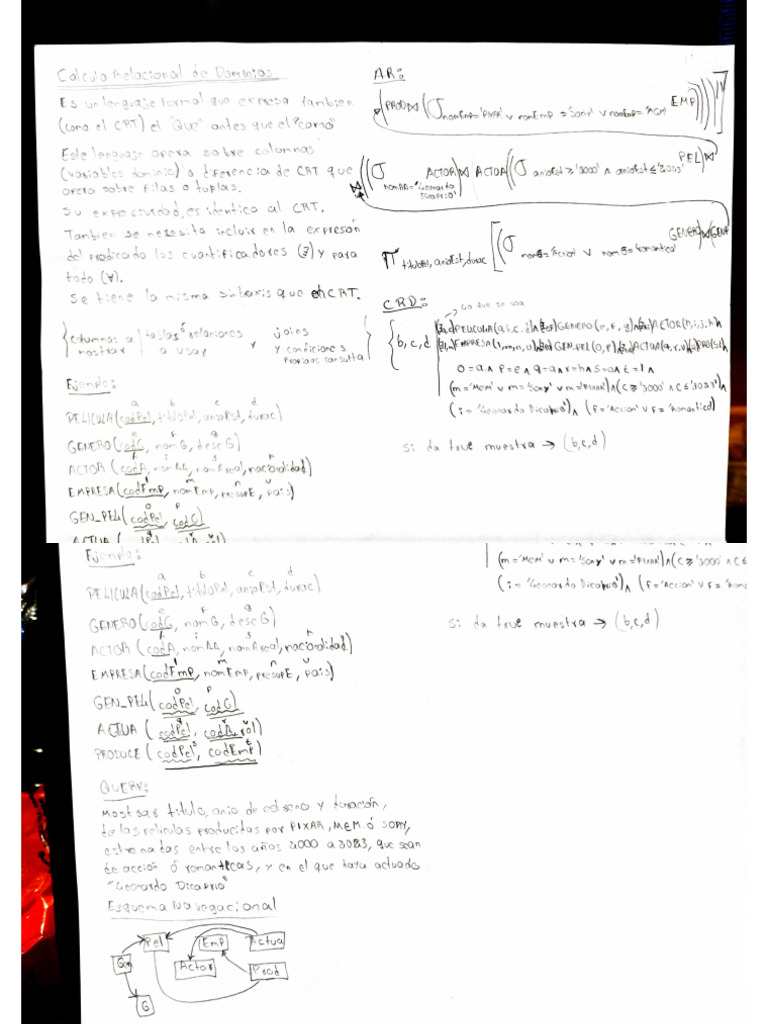 Calculo Relacional de Dominios
Es un lenguaje formal que expresa tambien
(como el CRT) el "Que" antes que el "como"
Este lenguaje opera sobre columnas
(variables dominio) a diferencia de CRT que
opera sobre filas o tuplas.
Su expresividad, es identico al CRT.
Tambien se necesita incluir en la expresión
del predicado los cuantificadores (∃) y para
todo (∀).
Se tiene la misma sintaxis que el CRT.
{columnas a mostrar | tablas ó relaciones a usar y joins y condiciones propias consulta}
Ejemplo:
a b c d
PELICULA(codPel, tituloPel, anioEst, durac)
e f g
GENERO(codG, nomG, descG)
ACTOR (codA, nomAA, nomAreal, nacionalidad)
EMPRESA(codEmp, nomEmp, presupE, pais)
GEN_PELI(codPel, codG)
AR:
(PROD⋈(σ nomEmp='PIXAR' ∨ nomEmp='Sony' ∨ nomEmp='MGM' EMP))))]
⋈((σ nomAA='Leonardo Dicaprio' ACTOR)⋈ ACTUA((σ anioEst≥'2000' ∧ anioEst≤'2023' PEL)⋈
π tituloPel, anioEst, durac [(σ nomG='Accion' ∨ nomG='Romantica' GENERO)⋈(GENP
CRD:
→ Lo que se usa
{b,c,d
o=a ∧ p=e ∧ q=a ∧ r=h ∧ s=a ∧ t=l ∧
(m='MGM' ∨ m='Sony' ∨ m='PIXAR') ∧ (c≥'2000' ∧ c≤'2023') ∧
(i='Leonardo Dicaprio') ∧ (f='Accion' ∨ f='Romantico')
si da true muestra → (b,c,d)
Ejemplo:
a b c d
PELICULA(codPel, tituloPel, anioEst, durac)
e f g
GENERO(codG, nomG, descG)
ACTOR (codA, nomAA, nomAreal, nacionalidad)
EMPRESA(codEmp, nomEmp, presupE, pais)
GEN_PELI(codPel, codG)
ACTUA (codPel, codA, rol)
PRODUCE (codPel, codEmp)
(m='MGM' ∨ m='Sony' ∨ m='PIXAR') ∧ (c≥'2000' ∧ c≤
(i='Leonardo Dicaprio') ∧ (f='Accion' ∨ f='Roman
si da true muestra → (b,c,d)
QUERY:
Mostrar titulo, anio de estreno y duración,
de las peliculas producidas por PIXAR, MGM ó SONY,
estrenadas entre los años 2000 a 2023, que sean
de acción ó romanticas, y en el que haya actuado
"Leonardo Dicaprio"
Esquema Navegacional
Pel Emp Actua
Gen Actor Prod
G